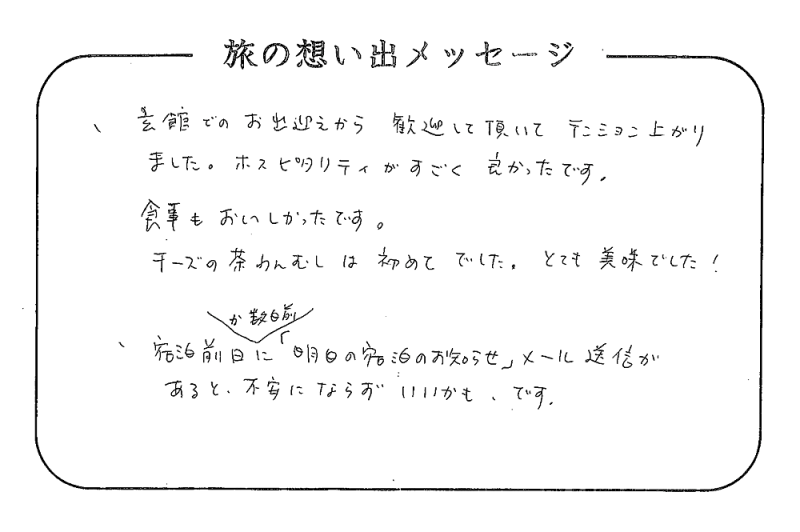 旅の想い出メッセージ
、 芸館でのお出迎えから 歓迎して頂いて テンション上がり
ました。ホスピタリティがすごく良かったです。
食事もおいしかったです。
チーズの茶わんむしは初めてでした。とても美味でした!
か数日前
、 宿泊前日に「明日の宿泊のお知らせ」メール送信が
あると、不安にならず いいかも、です。